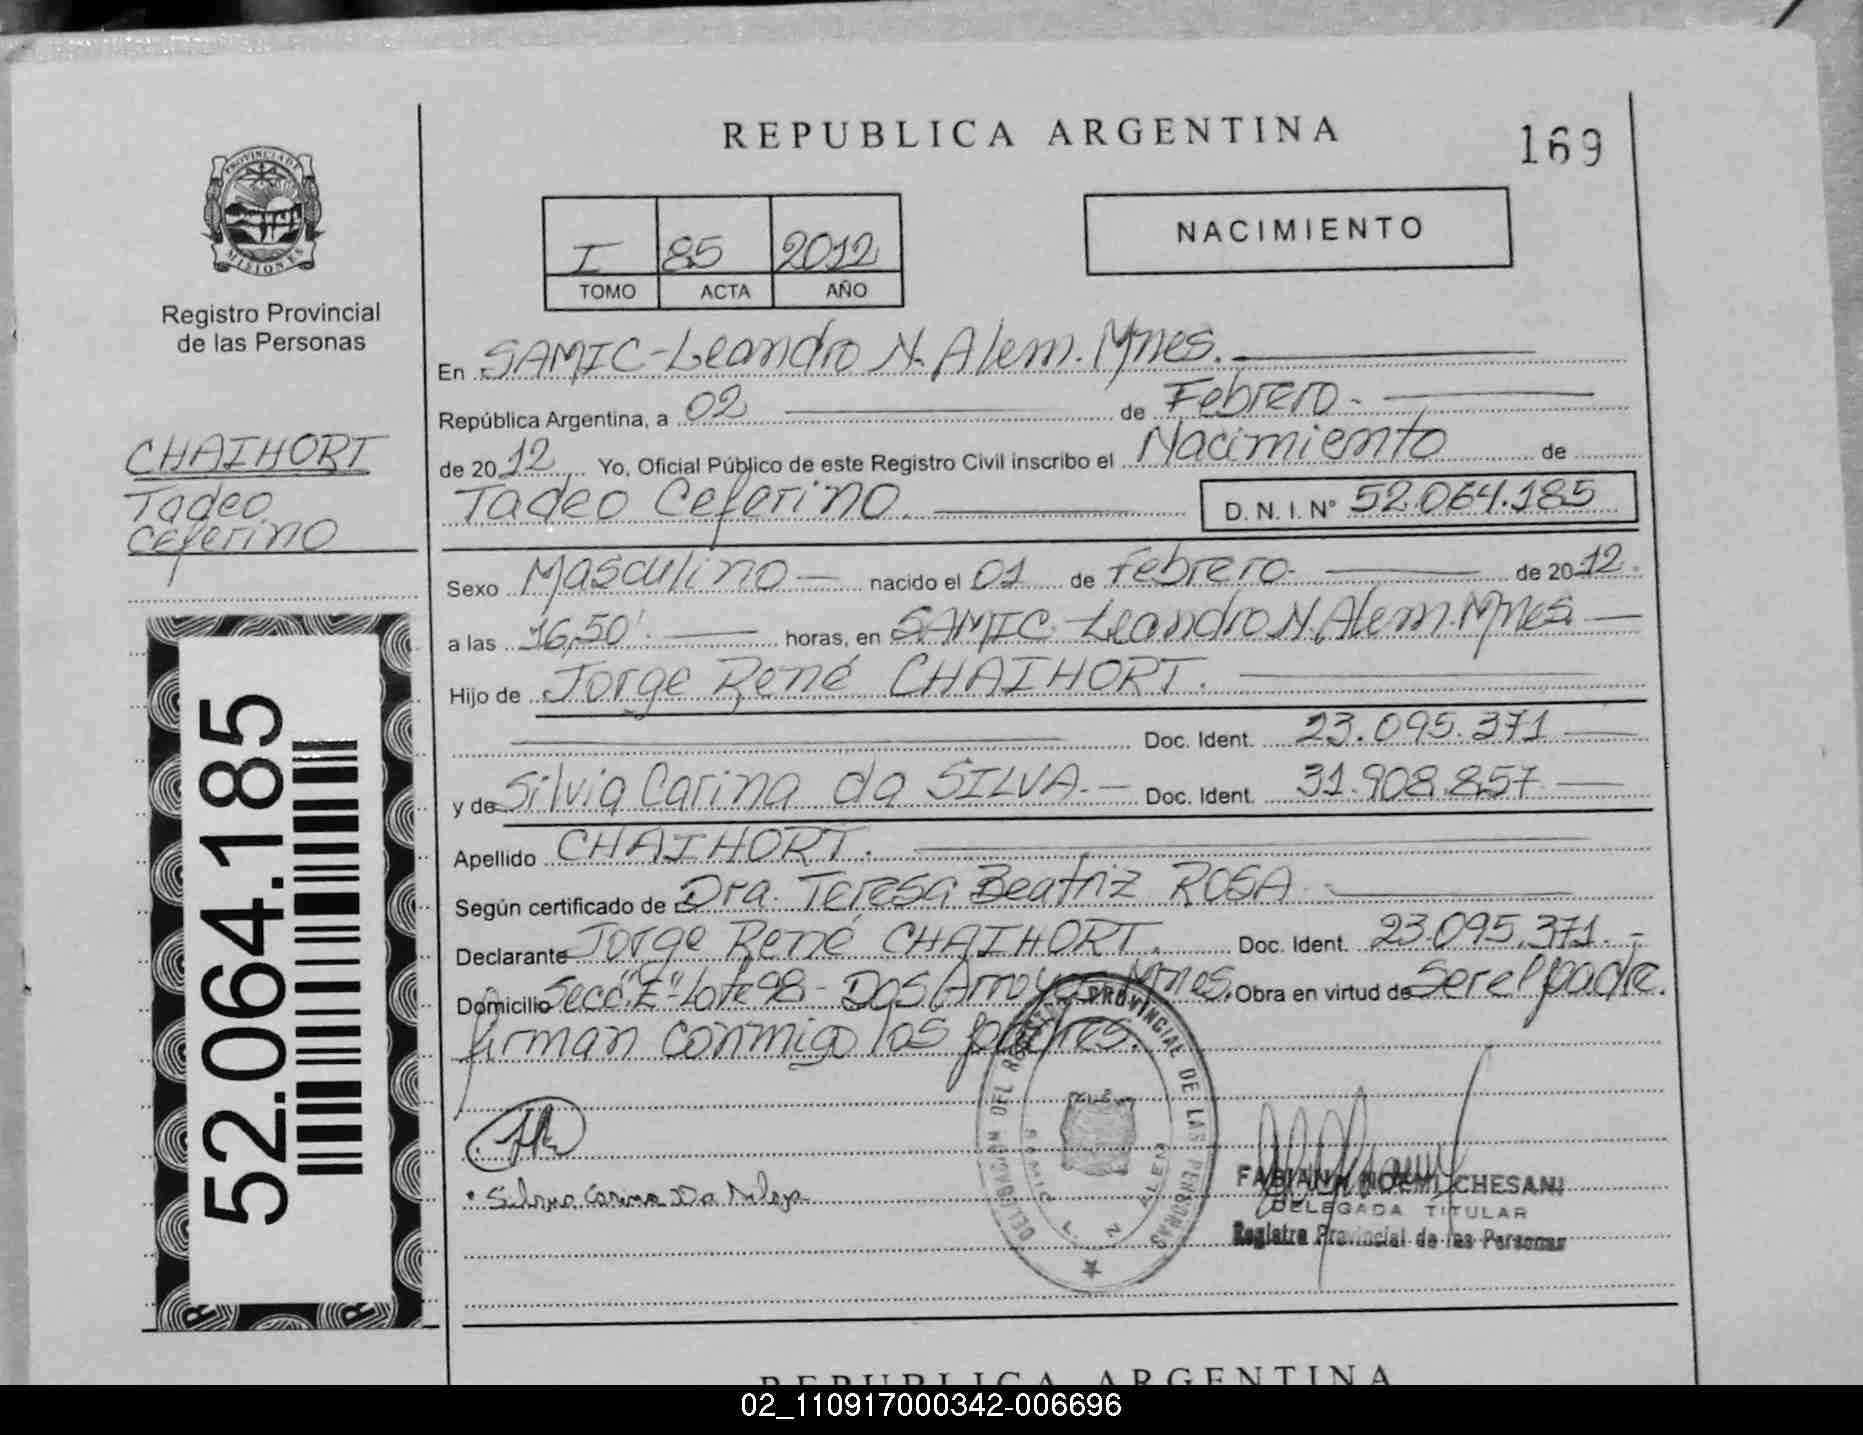 REPUBLICA ARGENTINA
169
PROVINCIA DE MISIONES
Registro Provincial
de las Personas
I 85 2012
TOMO ACTA AÑO
NACIMIENTO
CHAIHORT
Tadeo
Ceferino
52.064.185
En SAMIC-Leandro N. Alem. Mnes.
República Argentina, a 02 de Febrero.
de 2012 Yo, Oficial Público de este Registro Civil inscribo el Nacimiento de
Tadeo Ceferino. D.N.I.Nº 52.064.185
Sexo Masculino nacido el 01 de Febrero. de 2012.
a las 16,50'. horas, en SAMIC-Leandro N. Alem. Mnes.
Hijo de Jorge René CHAIHORT.
Doc. Ident. 23.095.371
y de Silvia Carina da SILVA. Doc. Ident. 31.908.857
Apellido CHAIHORT.
Según certificado de Dra. Teresa Beatriz ROSA.
Declarante Jorge René CHAIHORT. Doc. Ident. 23.095.371.
Domicilio Secc."E"-Lote 98-Dos Arroyos Mnes. Obra en virtud de Ser el padre.
firman conmigo los padres.
DELEGACION DEL REGISTRO PROVINCIAL DE LAS PERSONAS
SAMIC L. N. ALEM
FABIANA NOEMI CHESANI
DELEGADA TITULAR
Registro Provincial de las Personas
REPUBLICA ARGENTINA
02_110917000342-006696